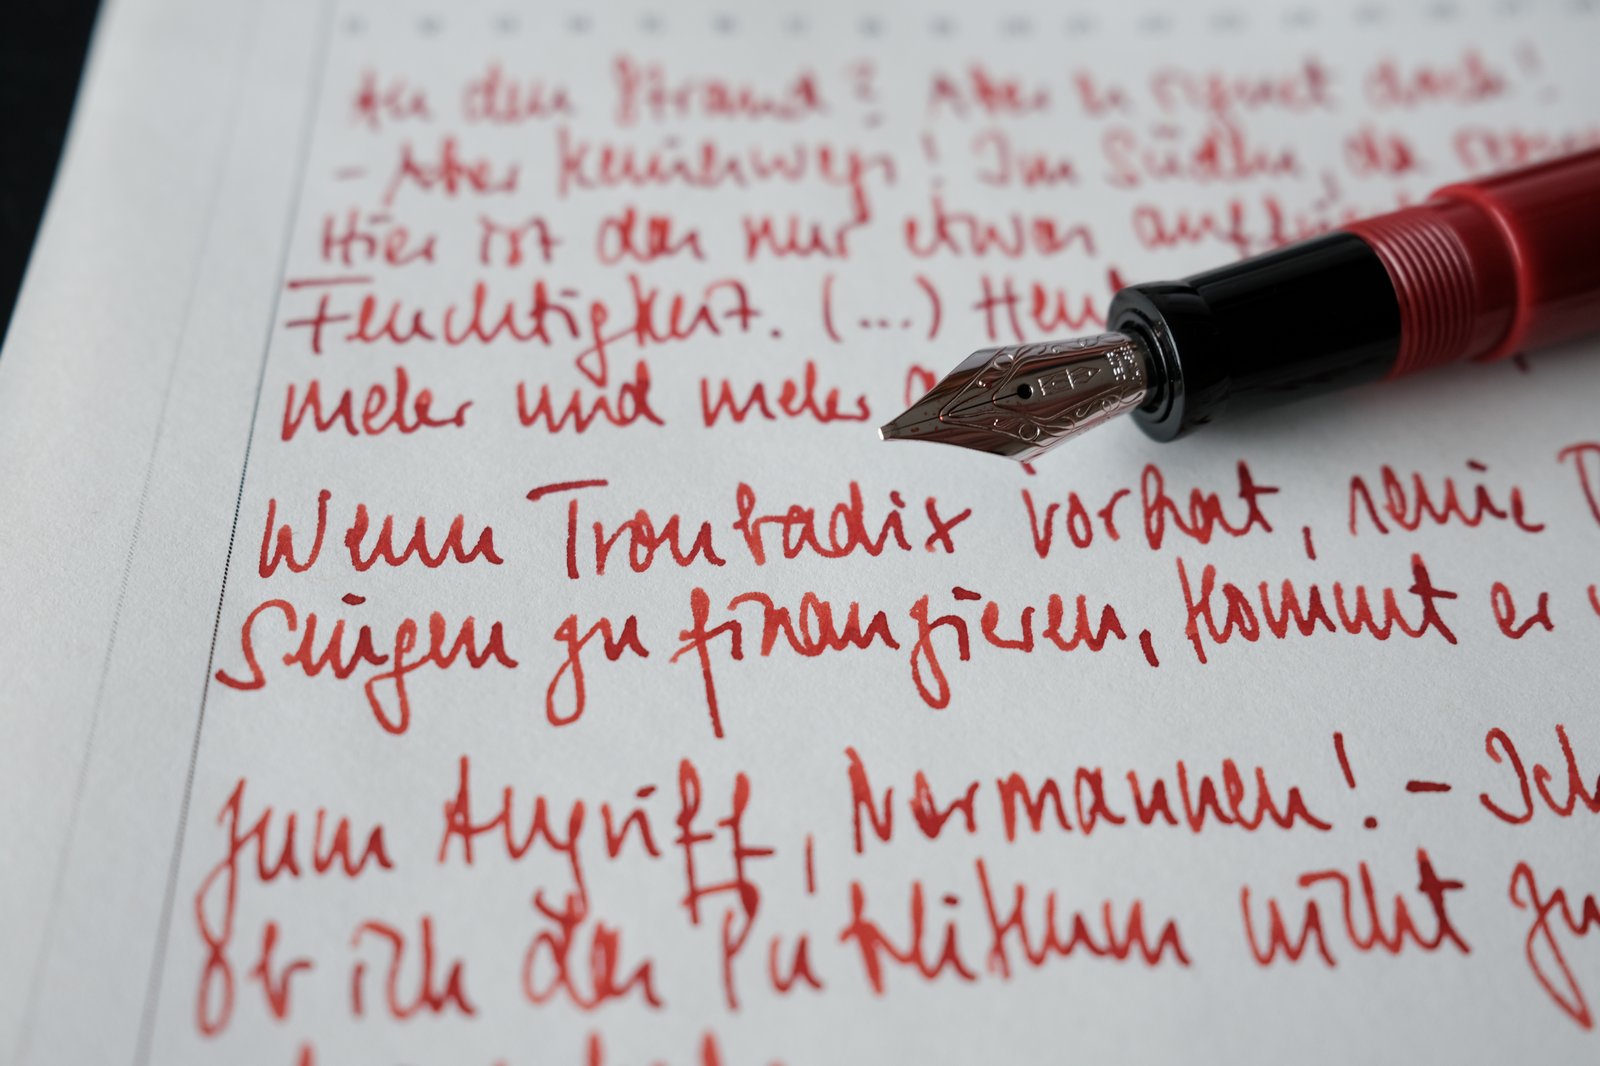 An den Strand? Aber es regnet doch!
- Aber keineswegs! Im Süden, da
Hier ist das nur etwas
Feuchtigkeit. (...)
mehr und mehr
Wenn Troubadix vorhat, seine
Singen zu finanzieren, kommt er
Zum Angriff, Normannen! - Ich
Ob ich das Publikum nicht zu